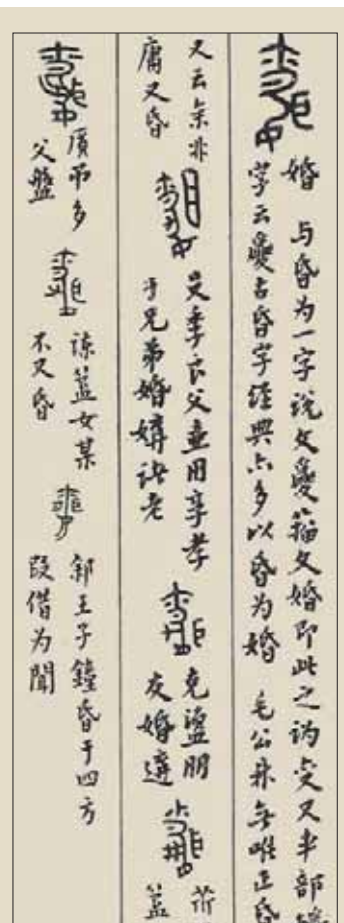 婚
与昏为一字说文夒籀文婚即此之讹变又车部
字云夒古昏字经典亦多以昏为婚 毛公鼎无唯正昏
又云余非
庸又昏
殳季良父壶用享孝
于兄弟婚媾诸老
克盨朋
友婚遘
弔多
父盤
谏簋女某
不又昏
王子鐘昏于四方
叚借为聞